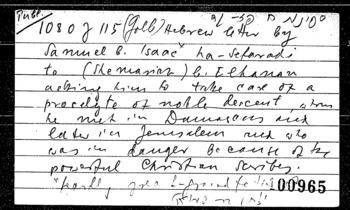 Publ.
1080 J 115 (Golb) Hebrew letter by
Samuel b. Isaac ha-sefaradi
to (Shemariah) b. Elhanan
asking him to take care of a
proselyte of noble descent, whom
he met in Damascus and
later in Jerusalem and who
was in danger because of the
powerful Christian scribes.
100965